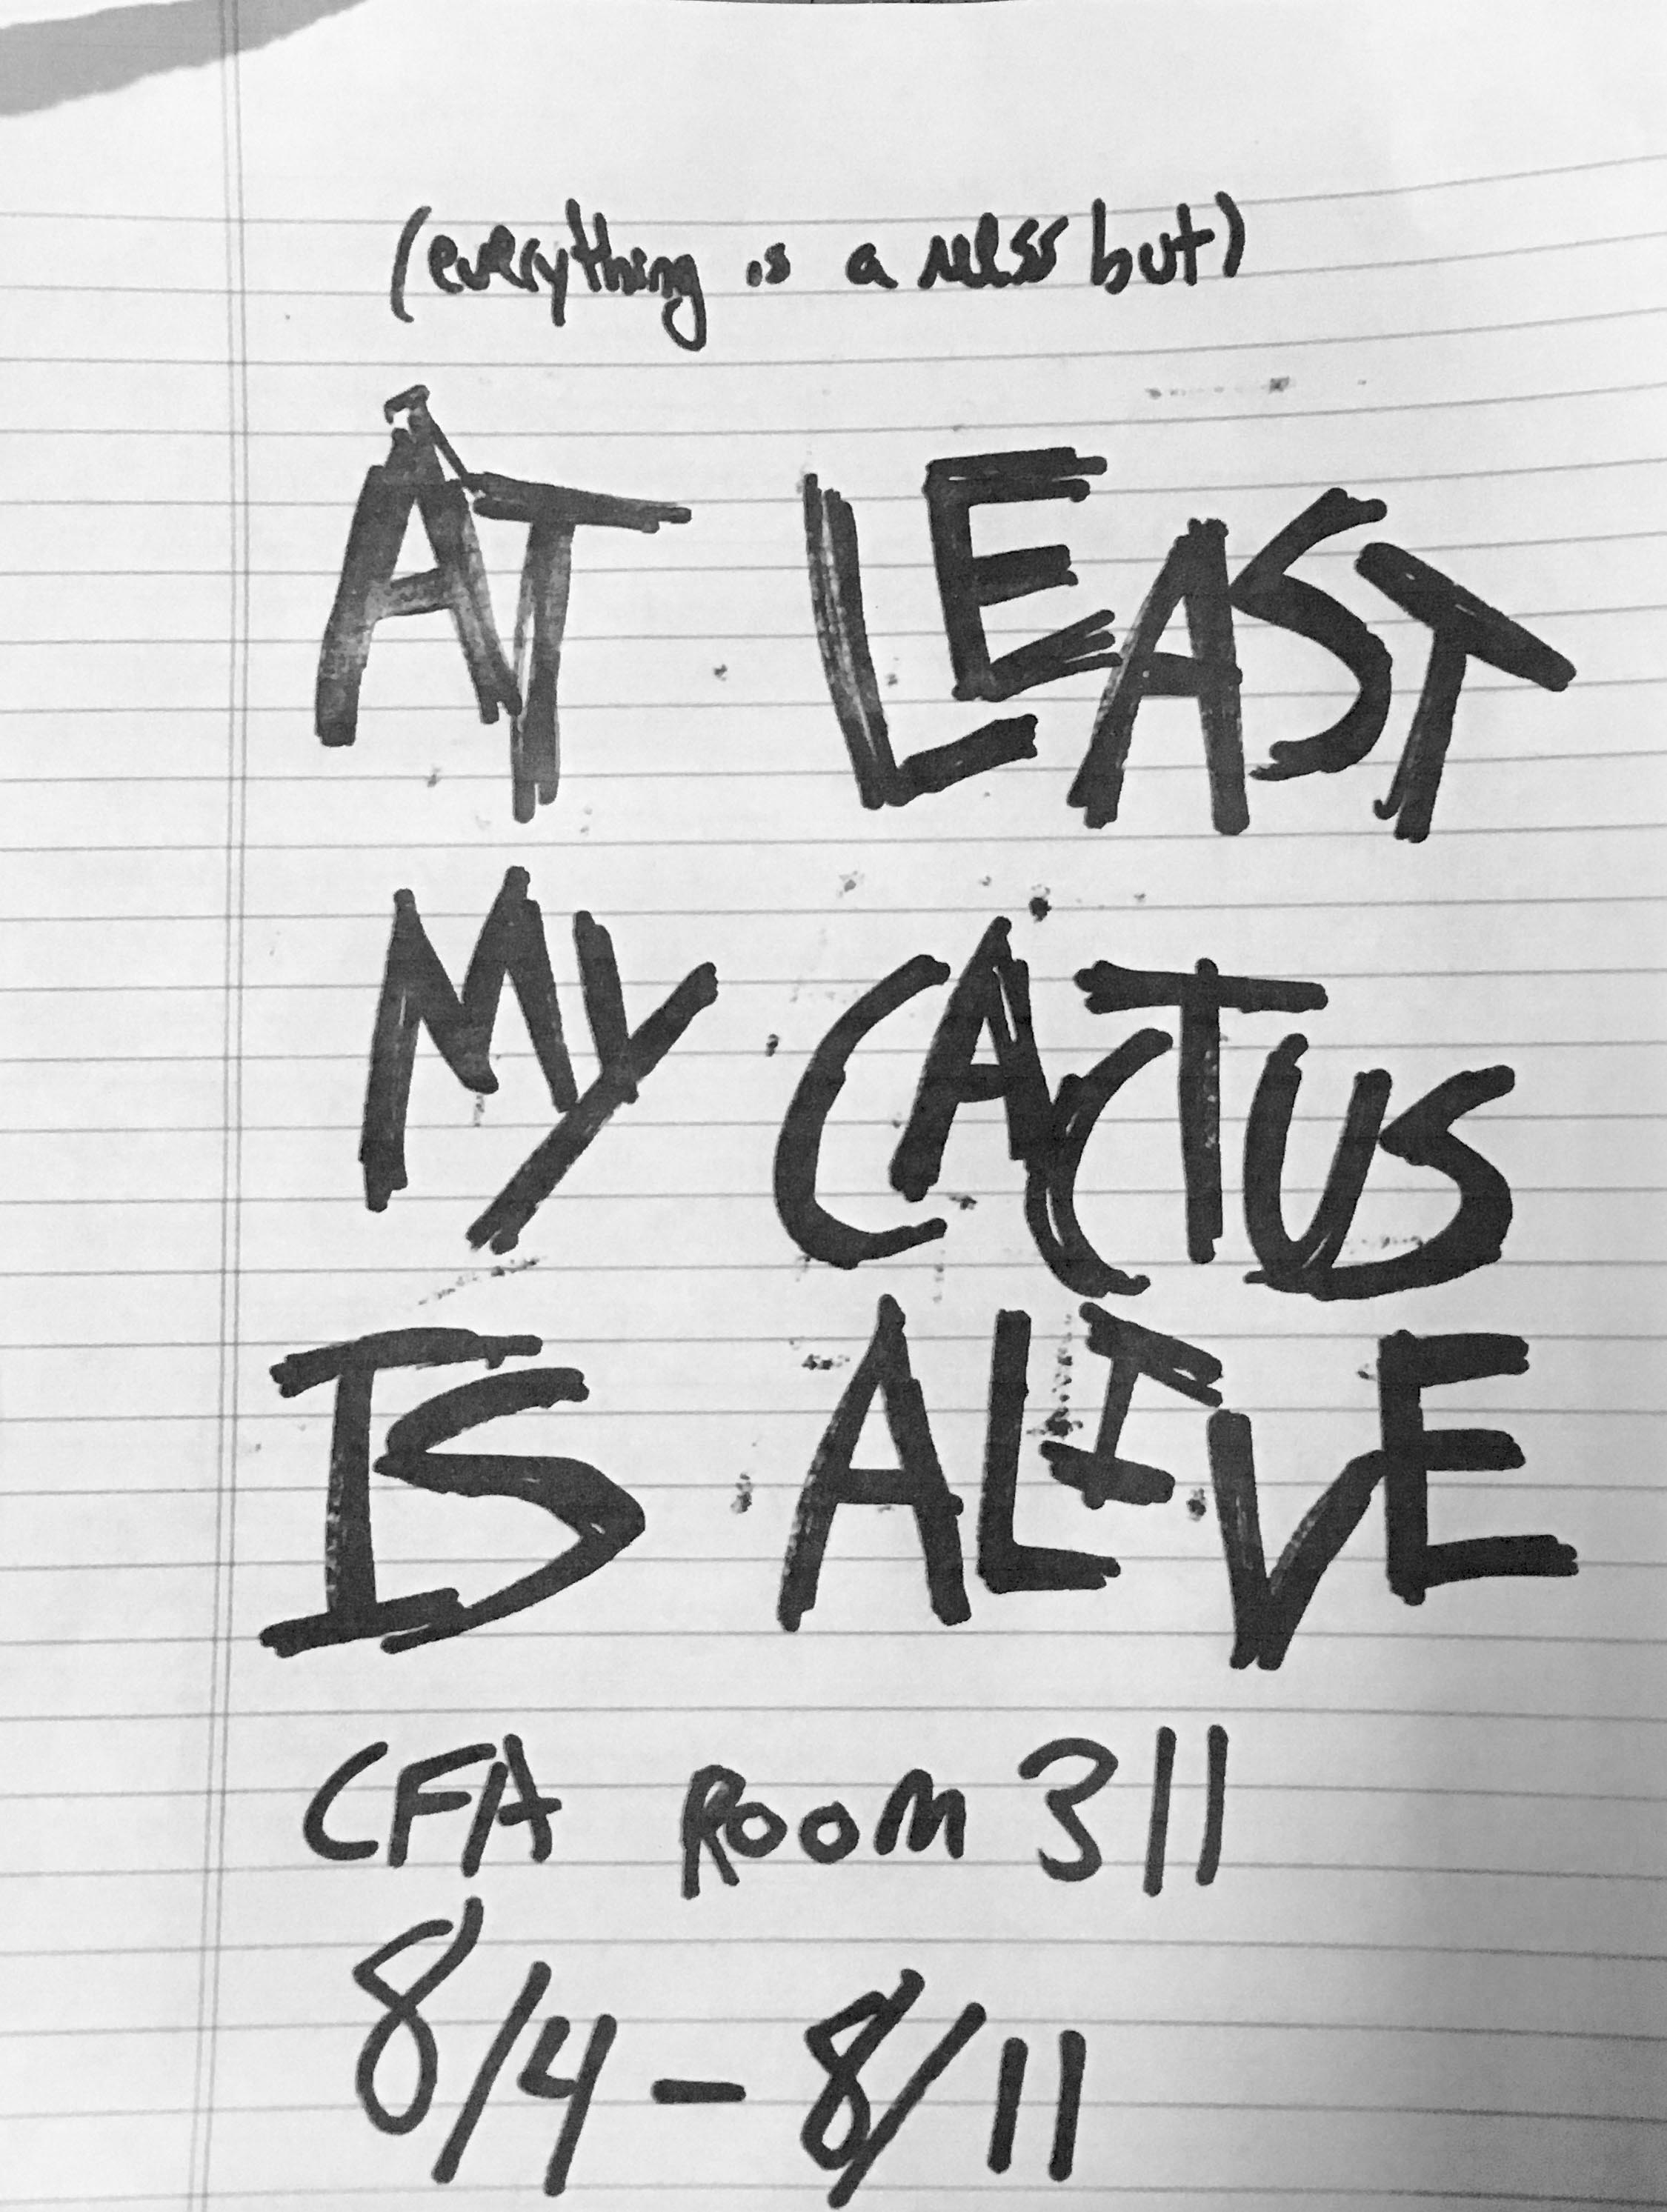 (everything is a mess but)
AT LEAST
MY CACTUS
IS ALIVE
CFA ROOM 311
8/4 - 8/11